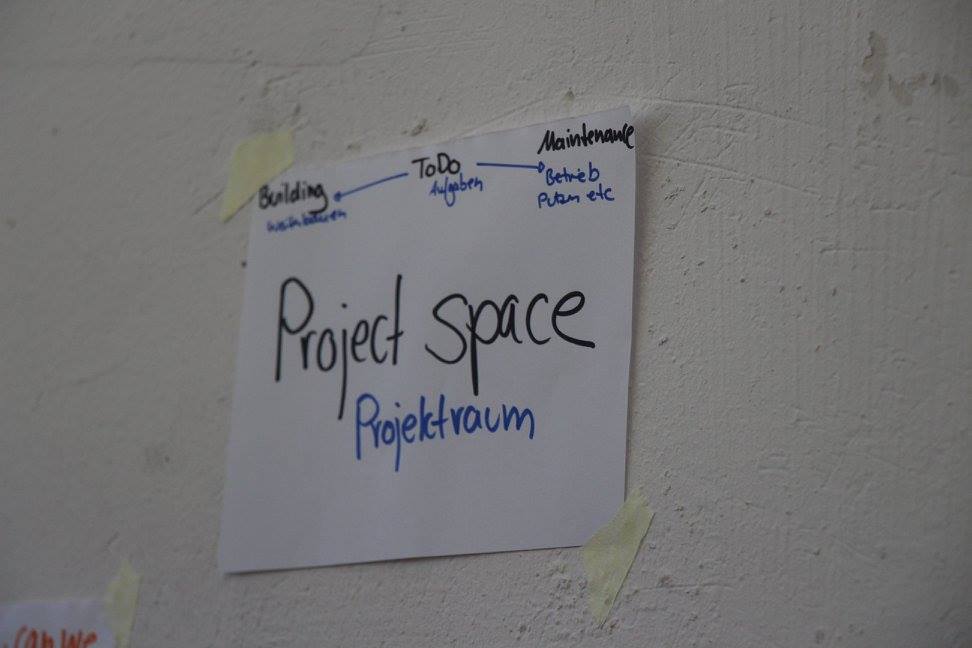 Building ToDo Maintenance
Weiterbauen Aufgaben Betrieb
Putzen etc
Project space
Projektraum
can we